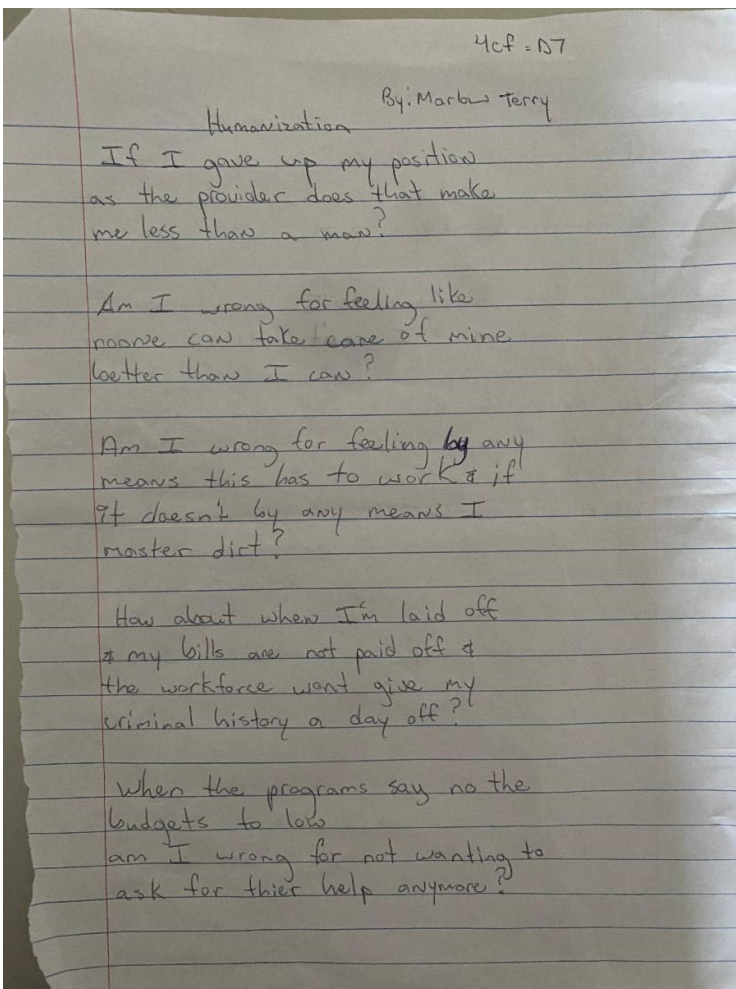 4cf = D7
By: Marlow Terry
Humanization
If I gave up my position
as the provider does that make
me less than a man?
Am I wrong for feeling like
noone can take care of mine
better than I can?
Am I wrong for feeling by any
means this has to work & if
it doesn't by any means I
master dirt?
How about when I'm laid off
& my bills are not paid off &
the workforce wont give my
criminal history a day off?
When the programs say no the
budgets to low
am I wrong for not wanting to
ask for thier help anymore?